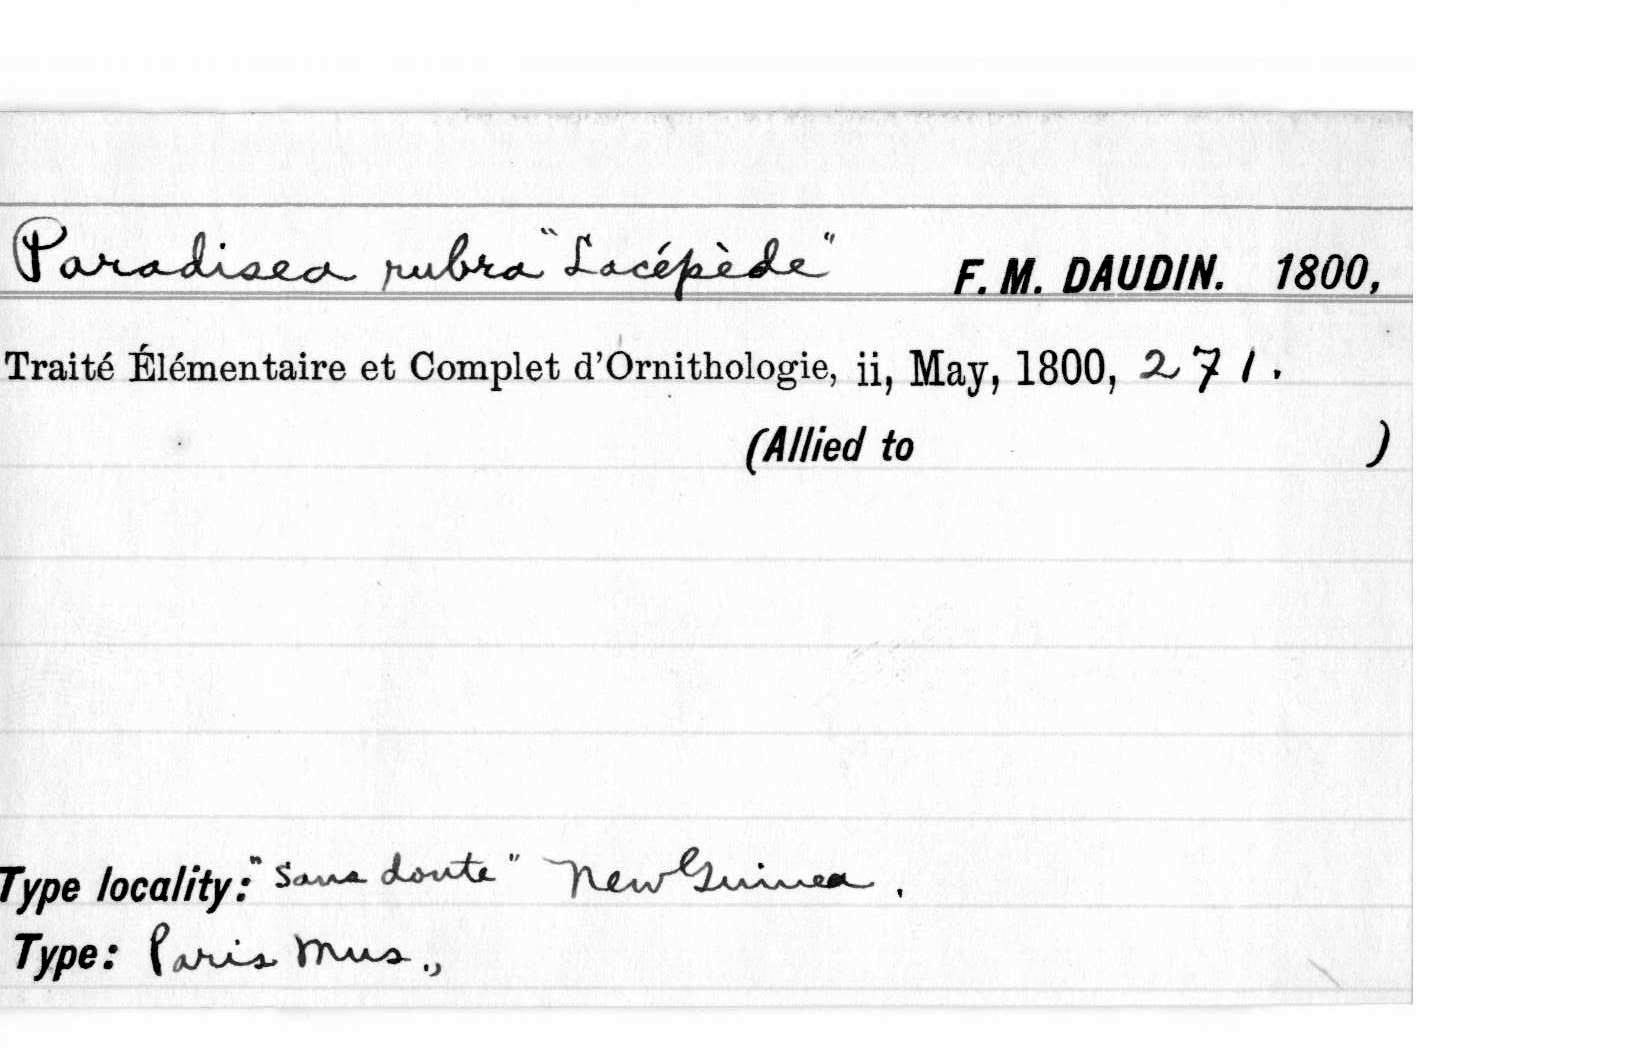 Paradisea rubra "Lacépède" F. M. DAUDIN. 1800,
Traité Élémentaire et Complet d'Ornithologie, ii, May, 1800, 271.
(Allied to )
Type locality: "Sans doute" New Guinea.
Type: Paris Mus.,